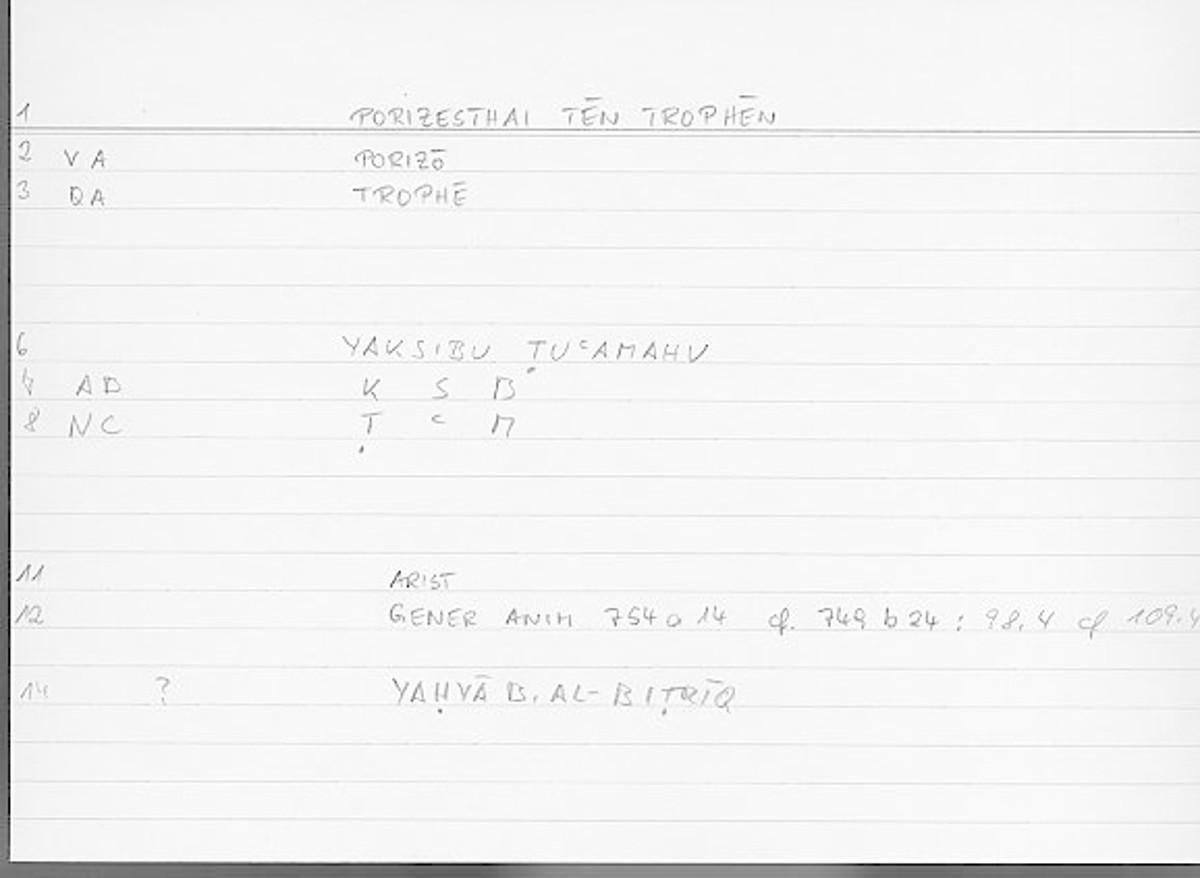 1 PORIZESTHAI TĒN TROPHĒN
2 VA PORIZŌ
3 QA TROPHĒ
6 YAKSIBU ṬUᶜAMAHU
7 AD K S B
8 NC Ṭ ᶜ M
11 ARIST
12 GENER ANIM 754 a 14 cf. 749 b 24 : 98.4 cf 109.4
14 ? YAḤYĀ B. AL-BIṬRĪQ